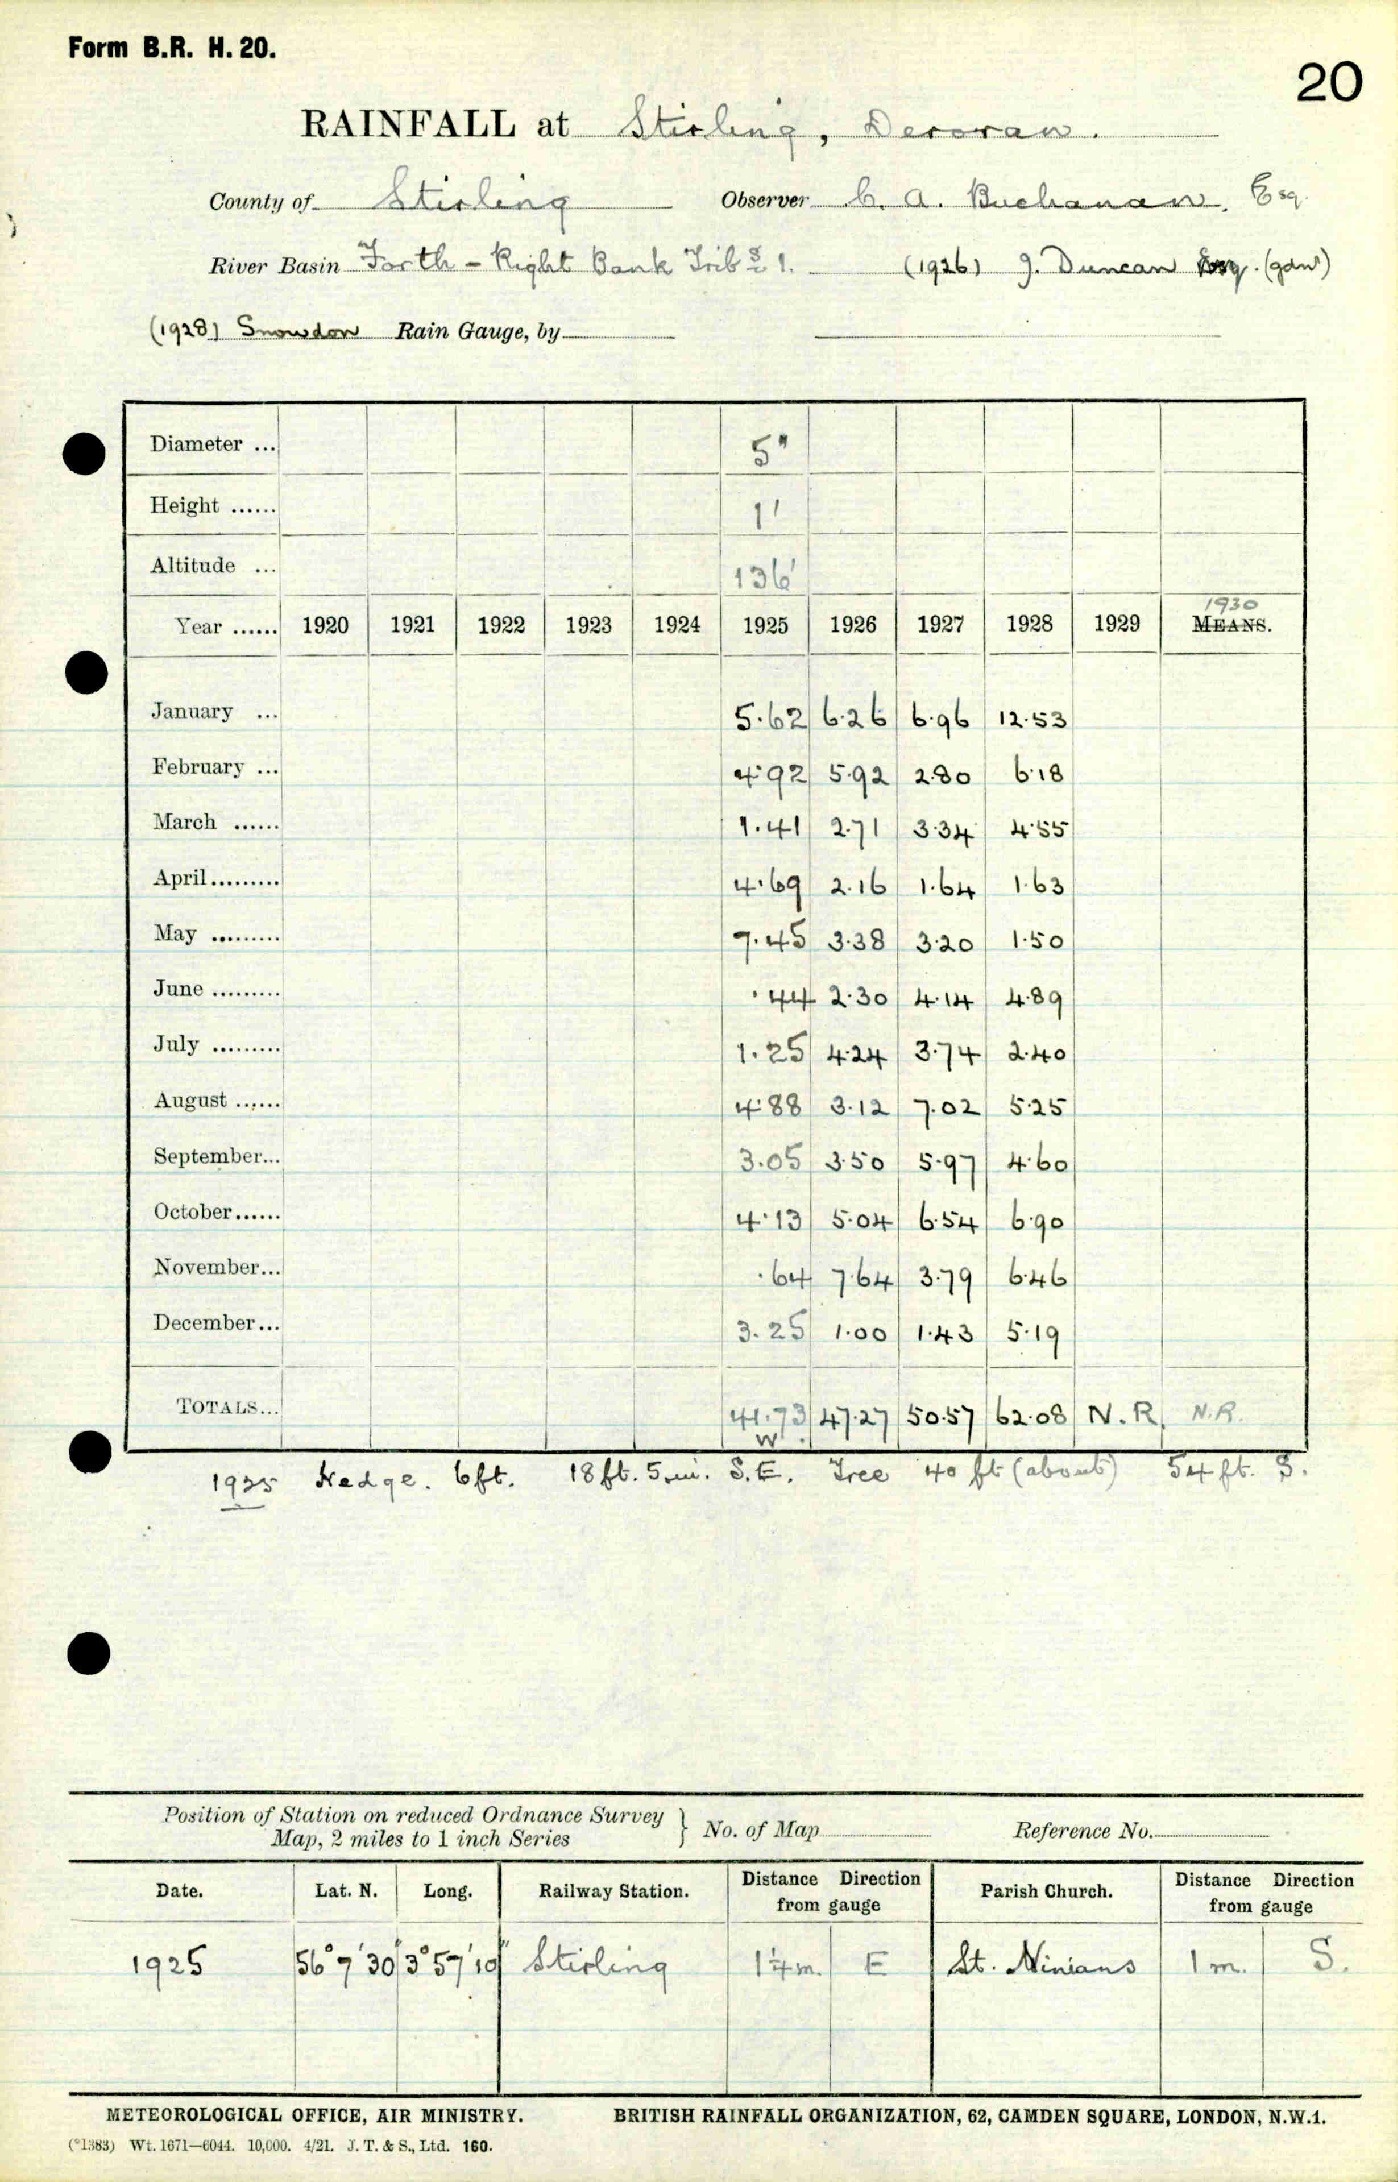 Form B.R. H. 20.
20
RAINFALL at Stirling, Deroran.
County of Stirling Observer C. A. Buchanan, Esq.
River Basin Forth - Right Bank Tribs 1. (1926) J. Duncan Esq. (gdnr)
(1928) Snowdon Rain Gauge, by
Diameter ... 5"
Height ...... 1'
Altitude ... 136'
1930
Year ...... 1920 1921 1922 1923 1924 1925 1926 1927 1928 1929 MEANS.
January ... 5.62 6.26 6.96 12.53
February ... 4.92 5.92 2.80 6.18
March ...... 1.41 2.71 3.34 4.55
April......... 4.69 2.16 1.64 1.63
May ......... 7.45 3.38 3.20 1.50
June ......... .44 2.30 4.14 4.89
July ......... 1.25 4.24 3.74 2.40
August ...... 4.88 3.12 7.02 5.25
September... 3.05 3.50 5.97 4.60
October...... 4.13 5.04 6.54 6.90
November... .64 7.64 3.79 6.46
December... 3.25 1.00 1.43 5.19
TOTALS... 41.73 47.27 50.57 62.08 N.R. N.R.
W
1925 Hedge. 6ft. 18ft. 5in. S.E. Tree 40 ft (about) 54 ft. S.
Position of Station on reduced Ordnance Survey
Map, 2 miles to 1 inch Series } No. of Map Reference No.
Date. Lat. N. Long. Railway Station. Distance Direction from gauge Parish Church. Distance Direction from gauge
1925 56° 7' 30" 3° 57' 10" Stirling 1¼m. E St. Ninians 1 m. S.
METEOROLOGICAL OFFICE, AIR MINISTRY. BRITISH RAINFALL ORGANIZATION, 62, CAMDEN SQUARE, LONDON, N.W.1.
(*1383) Wt. 1671—6044. 10,000. 4/21. J. T. & S., Ltd. 160.